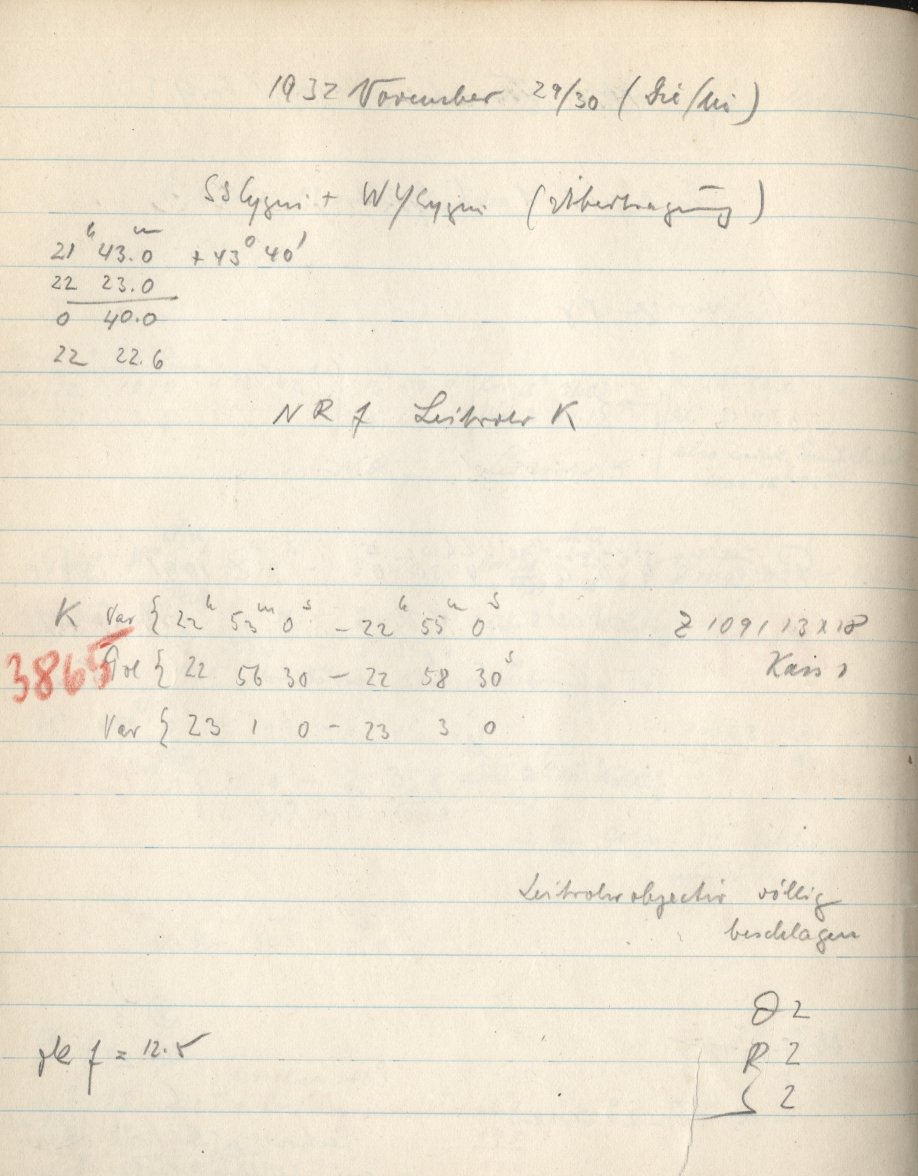 1932 November 29/30 (Die/Mi)
SS Cygni + WY Cygni (Übertragung)
21h 43.m0 + 43° 40'
22 23.0
0 40.0
22 22.6
NR f Leitrohr K
K Var { 22h 53m 0s - 22h 55m 0s Z 1091 13x18
3865 Pol { 22 56 30 - 22 58 30s
Var { 23 1 0 - 23 3 0
Leitrohrobjectiv völlig
beschlagen
2
f = 12.5 R 2
2